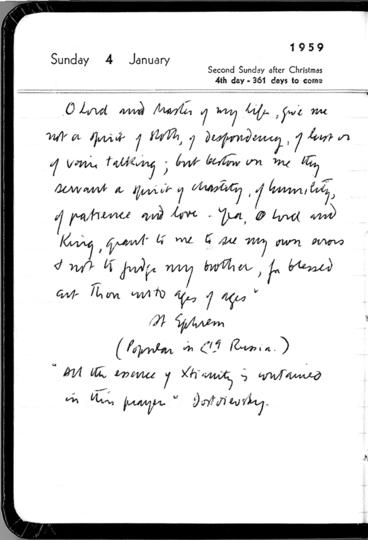 1959
Sunday 4 January
Second Sunday after Christmas
4th day - 361 days to come
O Lord and Master of my life, give me
not a spirit of sloth, of despondency, of lust or
of vain talking; but bestow on me thy
servant a spirit of chastity, of humility,
of patience and love. Yea, O Lord and
King, grant to me to see my own errors
& not to judge my brother, for blessed
art Thou unto ages of ages"
St Ephrem
(Popular in C19 Russia.)
"All the essence of Xtianity is contained
in this prayer" Dostoievsky.